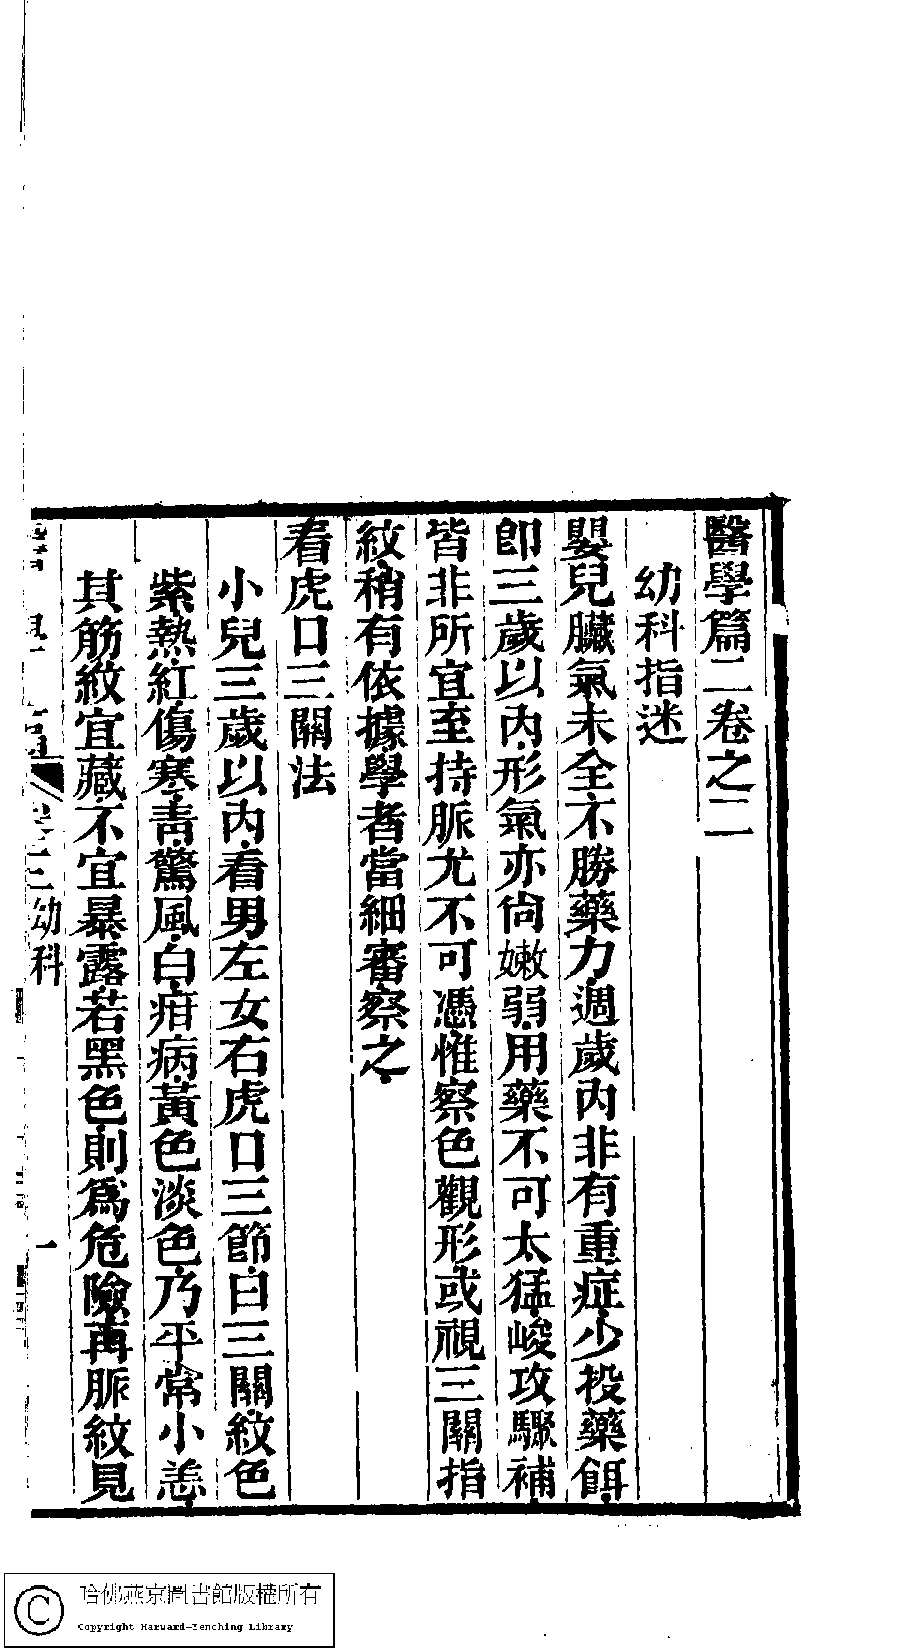 醫學篇二卷之二
幼科指迷
嬰兒臟氣未全不勝藥力週歲內非有重症少投藥餌
卽三歲以內形氣亦尙嫩弱用藥不可太猛峻攻驟補
皆非所宜至持脈尤不可憑惟察色觀形或視三關指
紋稍有依據學者當細審察之
看虎口三關法
小兒三歲以內看男左女右虎口三節曰三關紋色
紫熱紅傷寒靑驚風白疳病黃色淡色乃平常小恙
其筋紋宜藏不宜暴露若黑色則爲危險再脈紋見
幼科
一
哈佛燕京圖書館版權所有
Copyright Harvard-Yenching Library